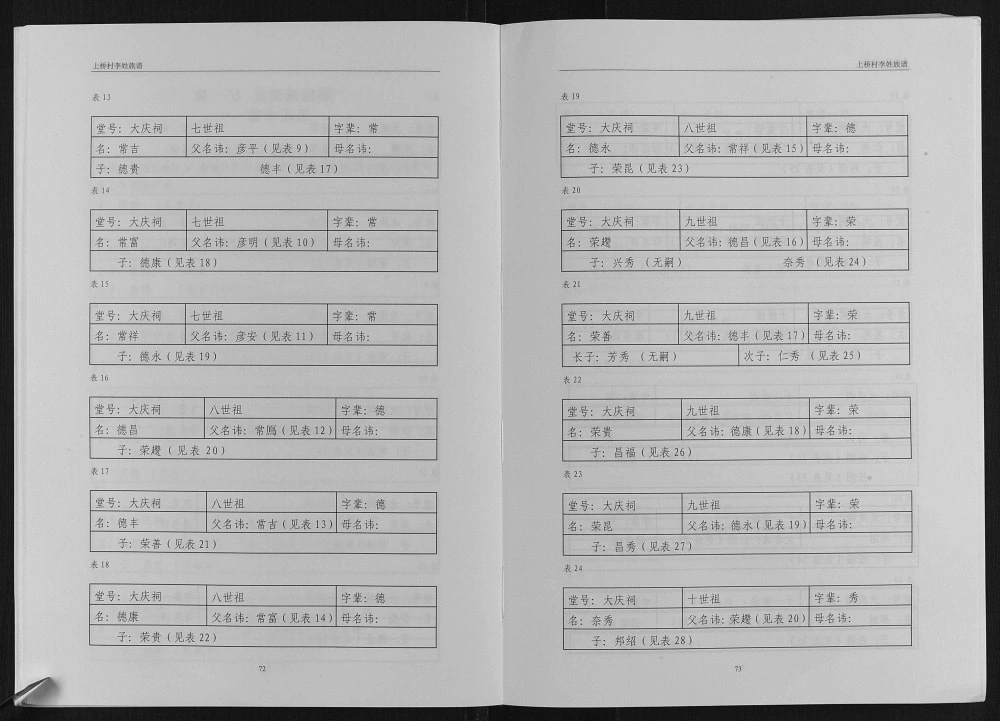 上桥村李姓族谱
表 13
堂号：大庆祠 七世祖 字辈：常
名：常吉 父名讳：彦平（见表 9） 母名讳：
子：德贵 德丰（见表 17）
表 14
堂号：大庆祠 七世祖 字辈：常
名：常富 父名讳：彦明（见表 10） 母名讳：
子：德康（见表 18）
表 15
堂号：大庆祠 七世祖 字辈：常
名：常祥 父名讳：彦安（见表 11） 母名讳：
子：德永（见表 19）
表 16
堂号：大庆祠 八世祖 字辈：德
名：德昌 父名讳：常（见表 12） 母名讳：
子：荣（见表 20）
表 17
堂号：大庆祠 八世祖 字辈：德
名：德丰 父名讳：常吉（见表 13） 母名讳：
子：荣善（见表 21）
表 18
堂号：大庆祠 八世祖 字辈：德
名：德康 父名讳：常富（见表 14） 母名讳：
子：荣贵（见表 22）
72
上桥村李姓族谱
表 19
堂号：大庆祠 八世祖 字辈：德
名：德永 父名讳：常祥（见表 15） 母名讳：
子：荣昆（见表 23）
表 20
堂号：大庆祠 九世祖 字辈：荣
名：荣 父名讳：德昌（见表 16） 母名讳：
子：兴秀（无嗣） 奈秀（见表 24）
表 21
堂号：大庆祠 九世祖 字辈：荣
名：荣善 父名讳：德丰（见表 17） 母名讳：
长子：芳秀（无嗣） 次子：仁秀（见表 25）
表 22
堂号：大庆祠 九世祖 字辈：荣
名：荣贵 父名讳：德康（见表 18） 母名讳：
子：昌福（见表 26）
表 23
堂号：大庆祠 九世祖 字辈：荣
名：荣昆 父名讳：德永（见表 19） 母名讳：
子：昌秀（见表 27）
表 24
堂号：大庆祠 十世祖 字辈：秀
名：奈秀 父名讳：荣（见表 20） 母名讳：
子：邦绍（见表 28）
73